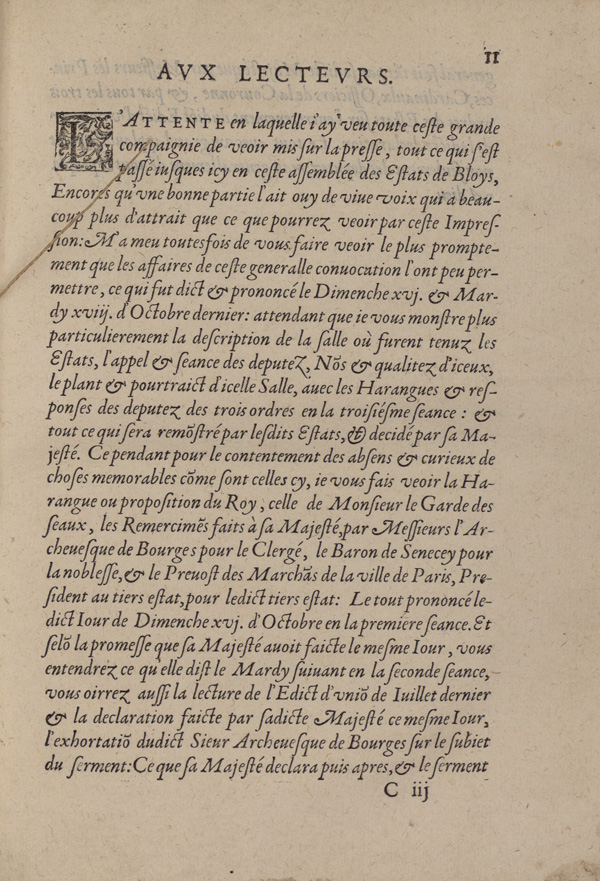 11
AVX LECTEVRS.
L'ATTENTE en laquelle i'ay veu toute ceste grande
compaignie de veoir mis sur la presse, tout ce qui s'est
passé iusques icy en ceste assemblée des Estats de Bloys,
Encores qu'vne bonne partie l'ait ouy de viue voix qui a beau-
coup plus d'attrait que ce que pourrez veoir par ceste Impres-
sion: M'a meu toutesfois de vous faire veoir le plus prompte-
ment que les affaires de ceste generalle conuocation l'ont peu per-
mettre, ce qui fut dict & prononcé le Dimenche xvj. & Mar-
dy xviij. d'Octobre dernier: attendant que ie vous monstre plus
particulierement la description de la salle où furent tenuz les
Estats, l'appel & seance des deputez, Nõs & qualitez d'iceux,
le plant & pourtraict d'icelle Salle, auec les Harangues & res-
ponses des deputez des trois ordres en la troisiésme seance: &
tout ce qui sera remõstré par lesdits Estats, & decidé par sa Ma-
jesté. Ce pendant pour le contentement des absens & curieux de
choses memorables cõme sont celles cy, ie vous fais veoir la Ha-
rangue ou proposition du Roy, celle de Monsieur le Garde des
seaux, les Remercimẽs faits à sa Majesté, par Messieurs l'Ar-
cheuesque de Bourges pour le Clergé, le Baron de Senecey pour
la noblesse, & le Preuost des Marchãs de la ville de Paris, Pre-
sident au tiers estat, pour ledict tiers estat: Le tout prononcé le-
dict Iour de Dimenche xvj. d'Octobre en la premiere seance. Et
selõ la promesse que sa Majesté auoit faicte le mesme Iour, vous
entendrez ce qu'elle dist le Mardy suiuant en la seconde seance,
vous oirrez aussi la lecture de l'Edict d'vniõ de Iuillet dernier
& la declaration faicte par sadicte Majesté ce mesme Iour,
l'exhortatiõ dudict Sieur Archeuesque de Bourges sur le subiet
du serment: Ce que sa Majesté declara puis apres, & le serment
C iij